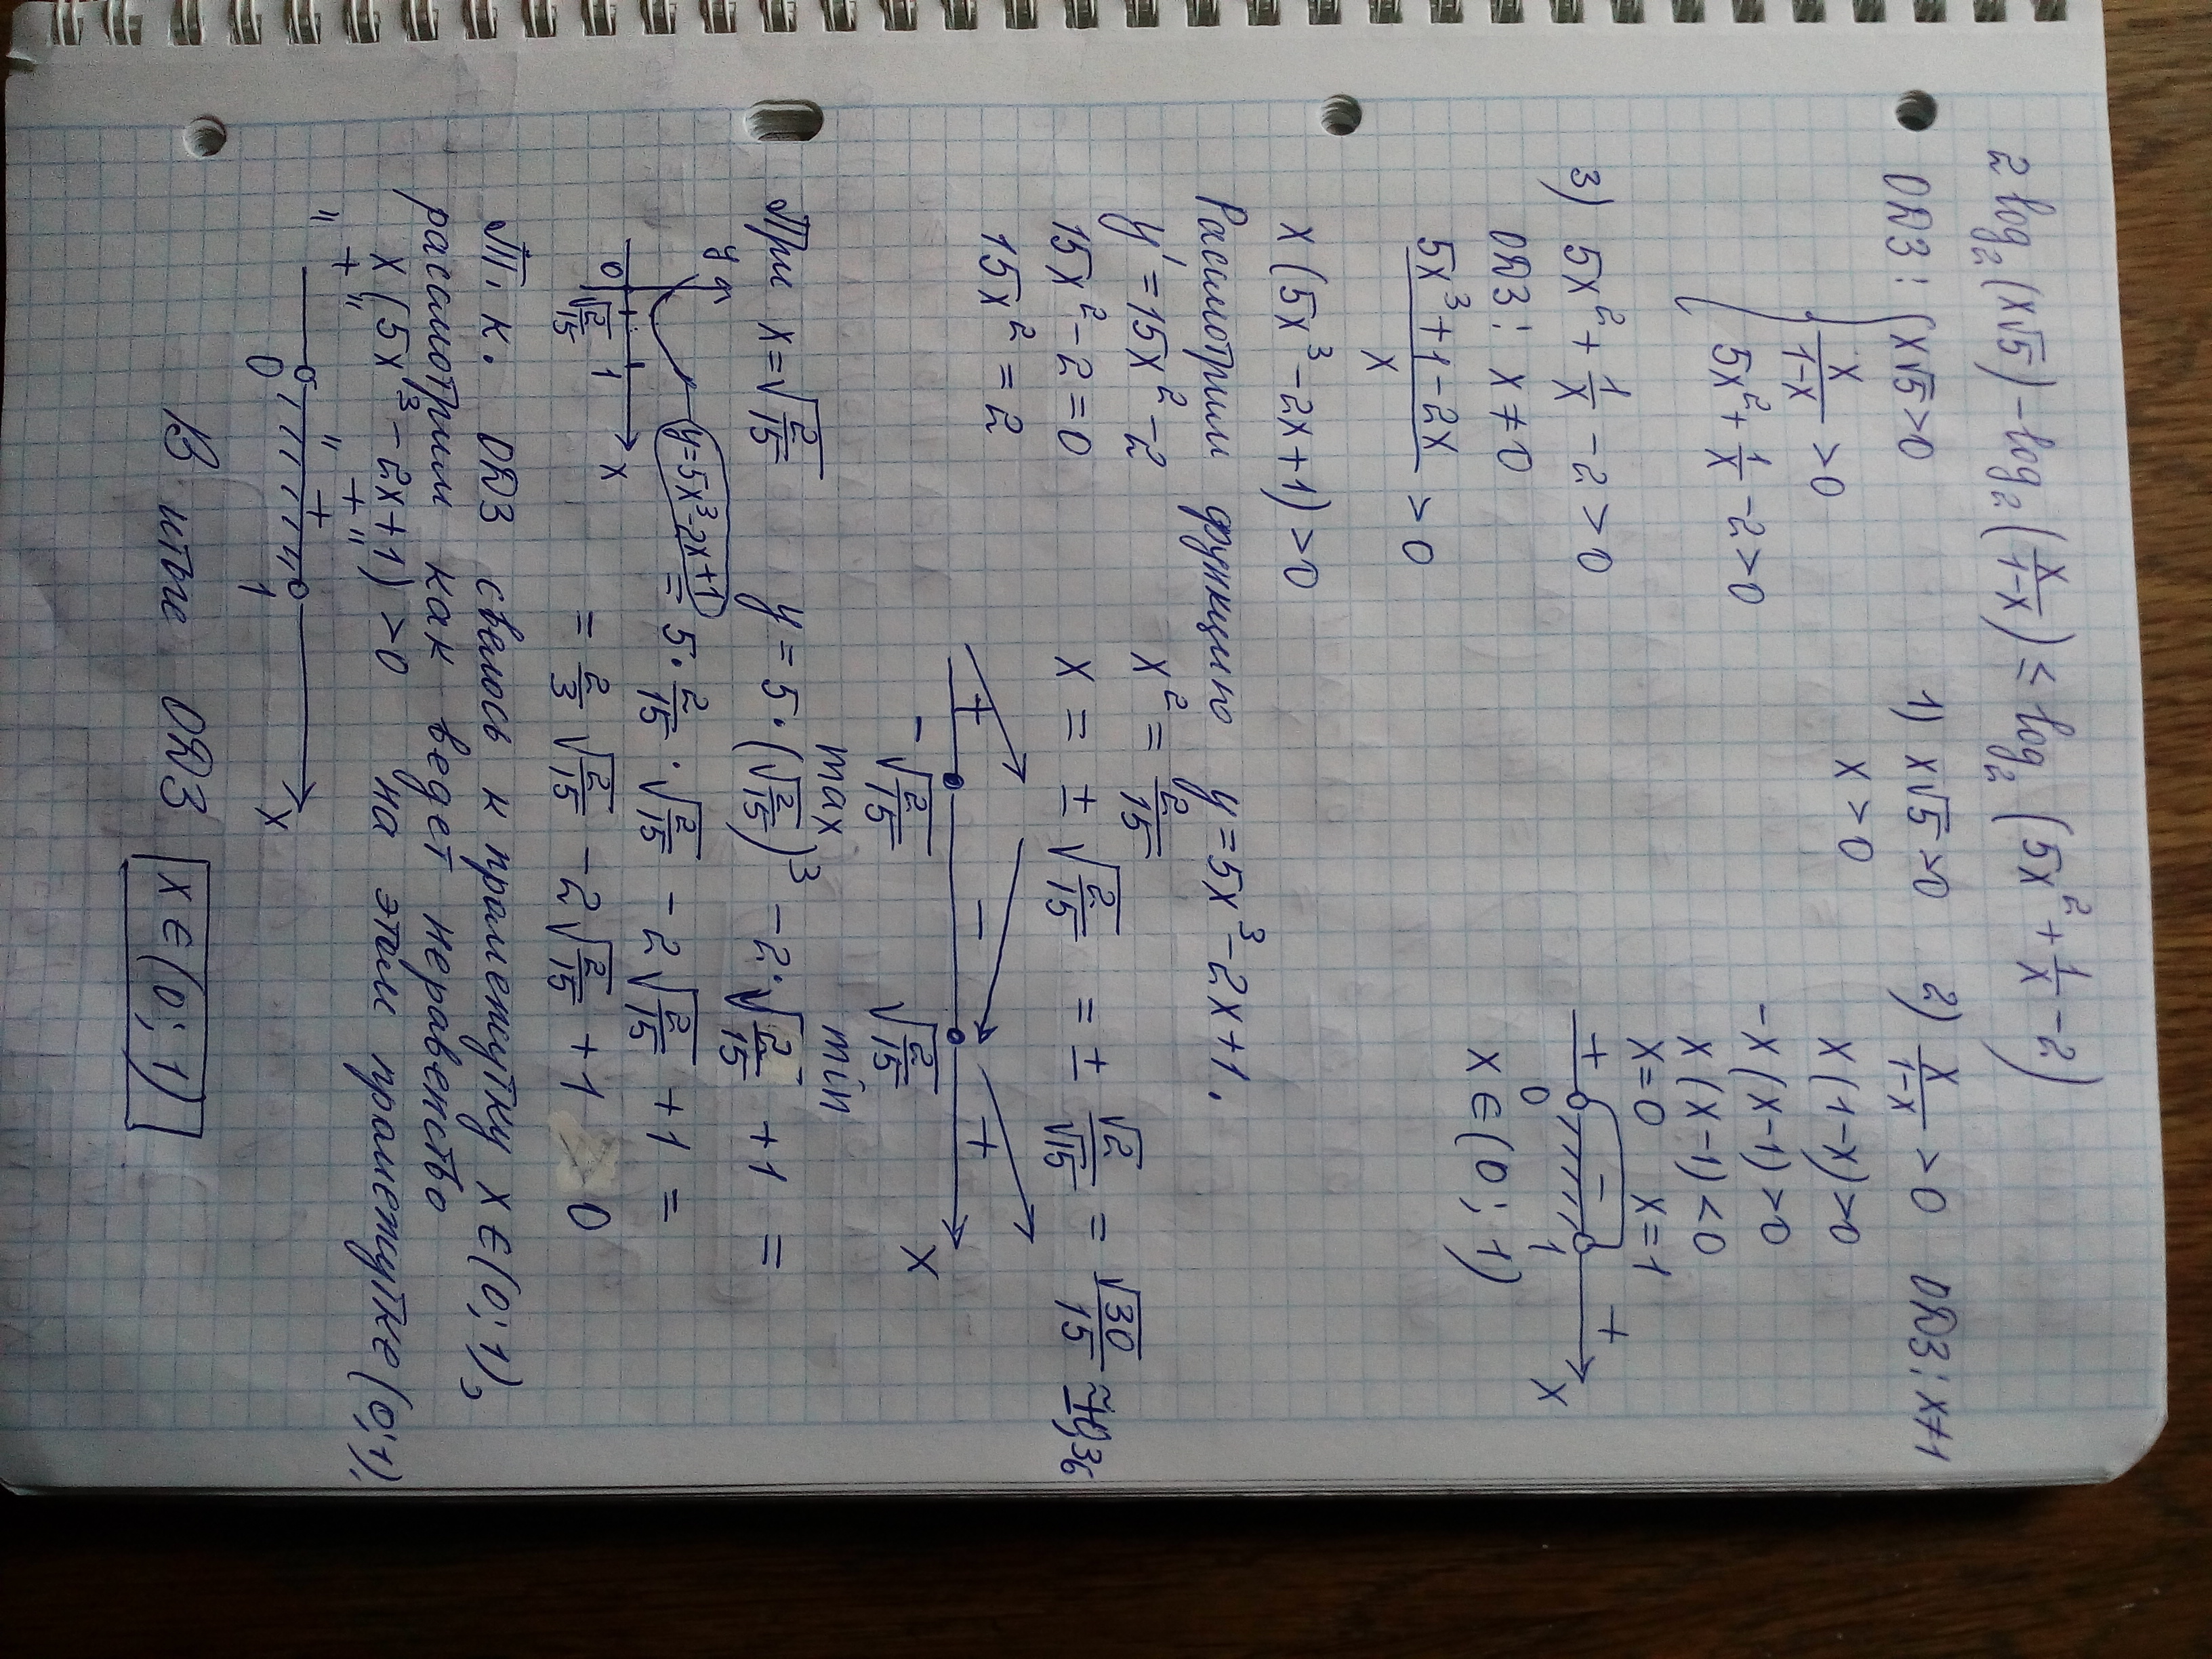 2 log₂ (x√5) − log₂ (x/(1−x)) ≤ log₂ (5x² + 1/x − 2)
ОДЗ: { x√5 > 0
x/(1−x) > 0
5x² + 1/x − 2 > 0
1) x√5 > 0
x > 0
2) x/(1−x) > 0 ОДЗ: x ≠ 1
x (1−x) > 0
−x (x−1) > 0
x (x−1) < 0
x = 0 x = 1
+ − + x
0 1
x ∈ (0; 1)
3) 5x² + 1/x − 2 > 0
ОДЗ: x ≠ 0
(5x³ + 1 − 2x)/x > 0
x (5x³ − 2x + 1) > 0
Рассмотрим функцию y = 5x³ − 2x + 1.
y' = 15x² − 2
15x² − 2 = 0
15x² = 2
x² = 2/15
x = ± √(2/15) = ± √2/√15 = √30/15 ≈
+ − + x
−√(2/15) √(2/15)
max min
При x = √(2/15) y = 5·(√(2/15))³ − 2·√(2/15) + 1 =
= 5·2/15·√(2/15) − 2√(2/15) + 1 =
= 2/3 √(2/15) − 2√(2/15) + 1 0
y
y = 5x³ − 2x + 1
0 √(2/15) 1 x
Т. к. ОДЗ свелось к промежутку x ∈ (0; 1),
рассмотрим как ведет неравенство
x (5x³ − 2x + 1) > 0 на этом промежутке (0; 1).
"+" "+"
+
0 1 x
В итоге ОДЗ x ∈ (0; 1)